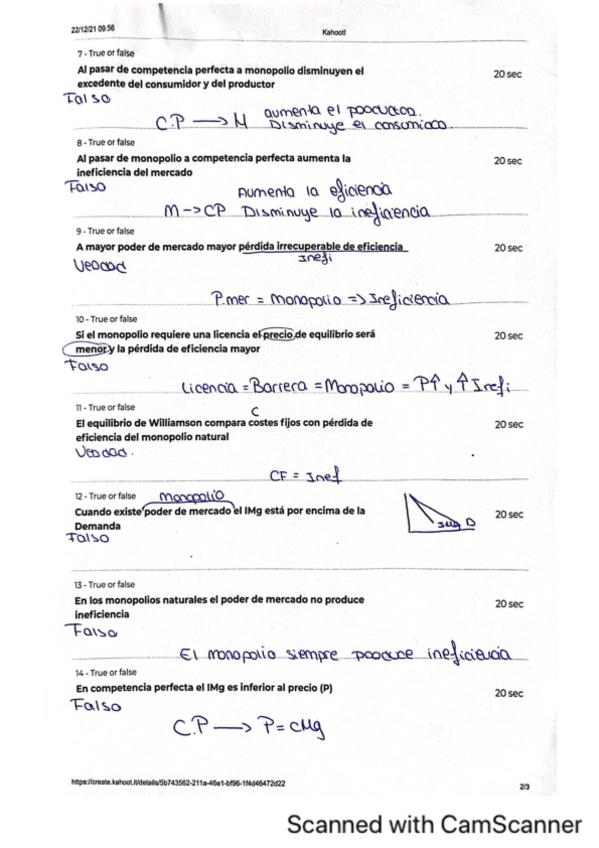 22/12/21 09:56
Kahoot!
7 - True or false
Al pasar de competencia perfecta a monopolio disminuyen el
20 sec
excedente del consumidor y del productor
Falso
aumenta el productor.
C.P → M
Disminuye el consumidor.
8 - True or false
Al pasar de monopolio a competencia perfecta aumenta la
20 sec
ineficiencia del mercado
Falso
Aumenta la eficiencia
M -> CP Disminuye la ineficiencia
9 - True or false
A mayor poder de mercado mayor pérdida irrecuperable de eficiencia
20 sec
Inefi
Verdad
P.mer = Monopolio => Ineficiencia
10 - True or false
Si el monopolio requiere una licencia el precio de equilibrio será
20 sec
menor y la pérdida de eficiencia mayor
Falso
Licencia = Barrera = Monopolio = P↑ y ↑ Inefi
11 - True or false
C
El equilibrio de Williamson compara costes fijos con pérdida de
20 sec
eficiencia del monopolio natural
Verdad.
CF = Inef
12 - True or false
Monopolio
Cuando existe poder de mercado el IMg está por encima de la
20 sec
Demanda
D
Falso
13 - True or false
En los monopolios naturales el poder de mercado no produce
20 sec
ineficiencia
Falso
El monopolio siempre produce ineficiencia
14 - True or false
En competencia perfecta el IMg es inferior al precio (P)
20 sec
Falso
C.P → P = CMg
https://create.kahoot.it/details/5b743562-211a-46e1-bf96-1f4d46472d22
2/3
Scanned with CamScanner